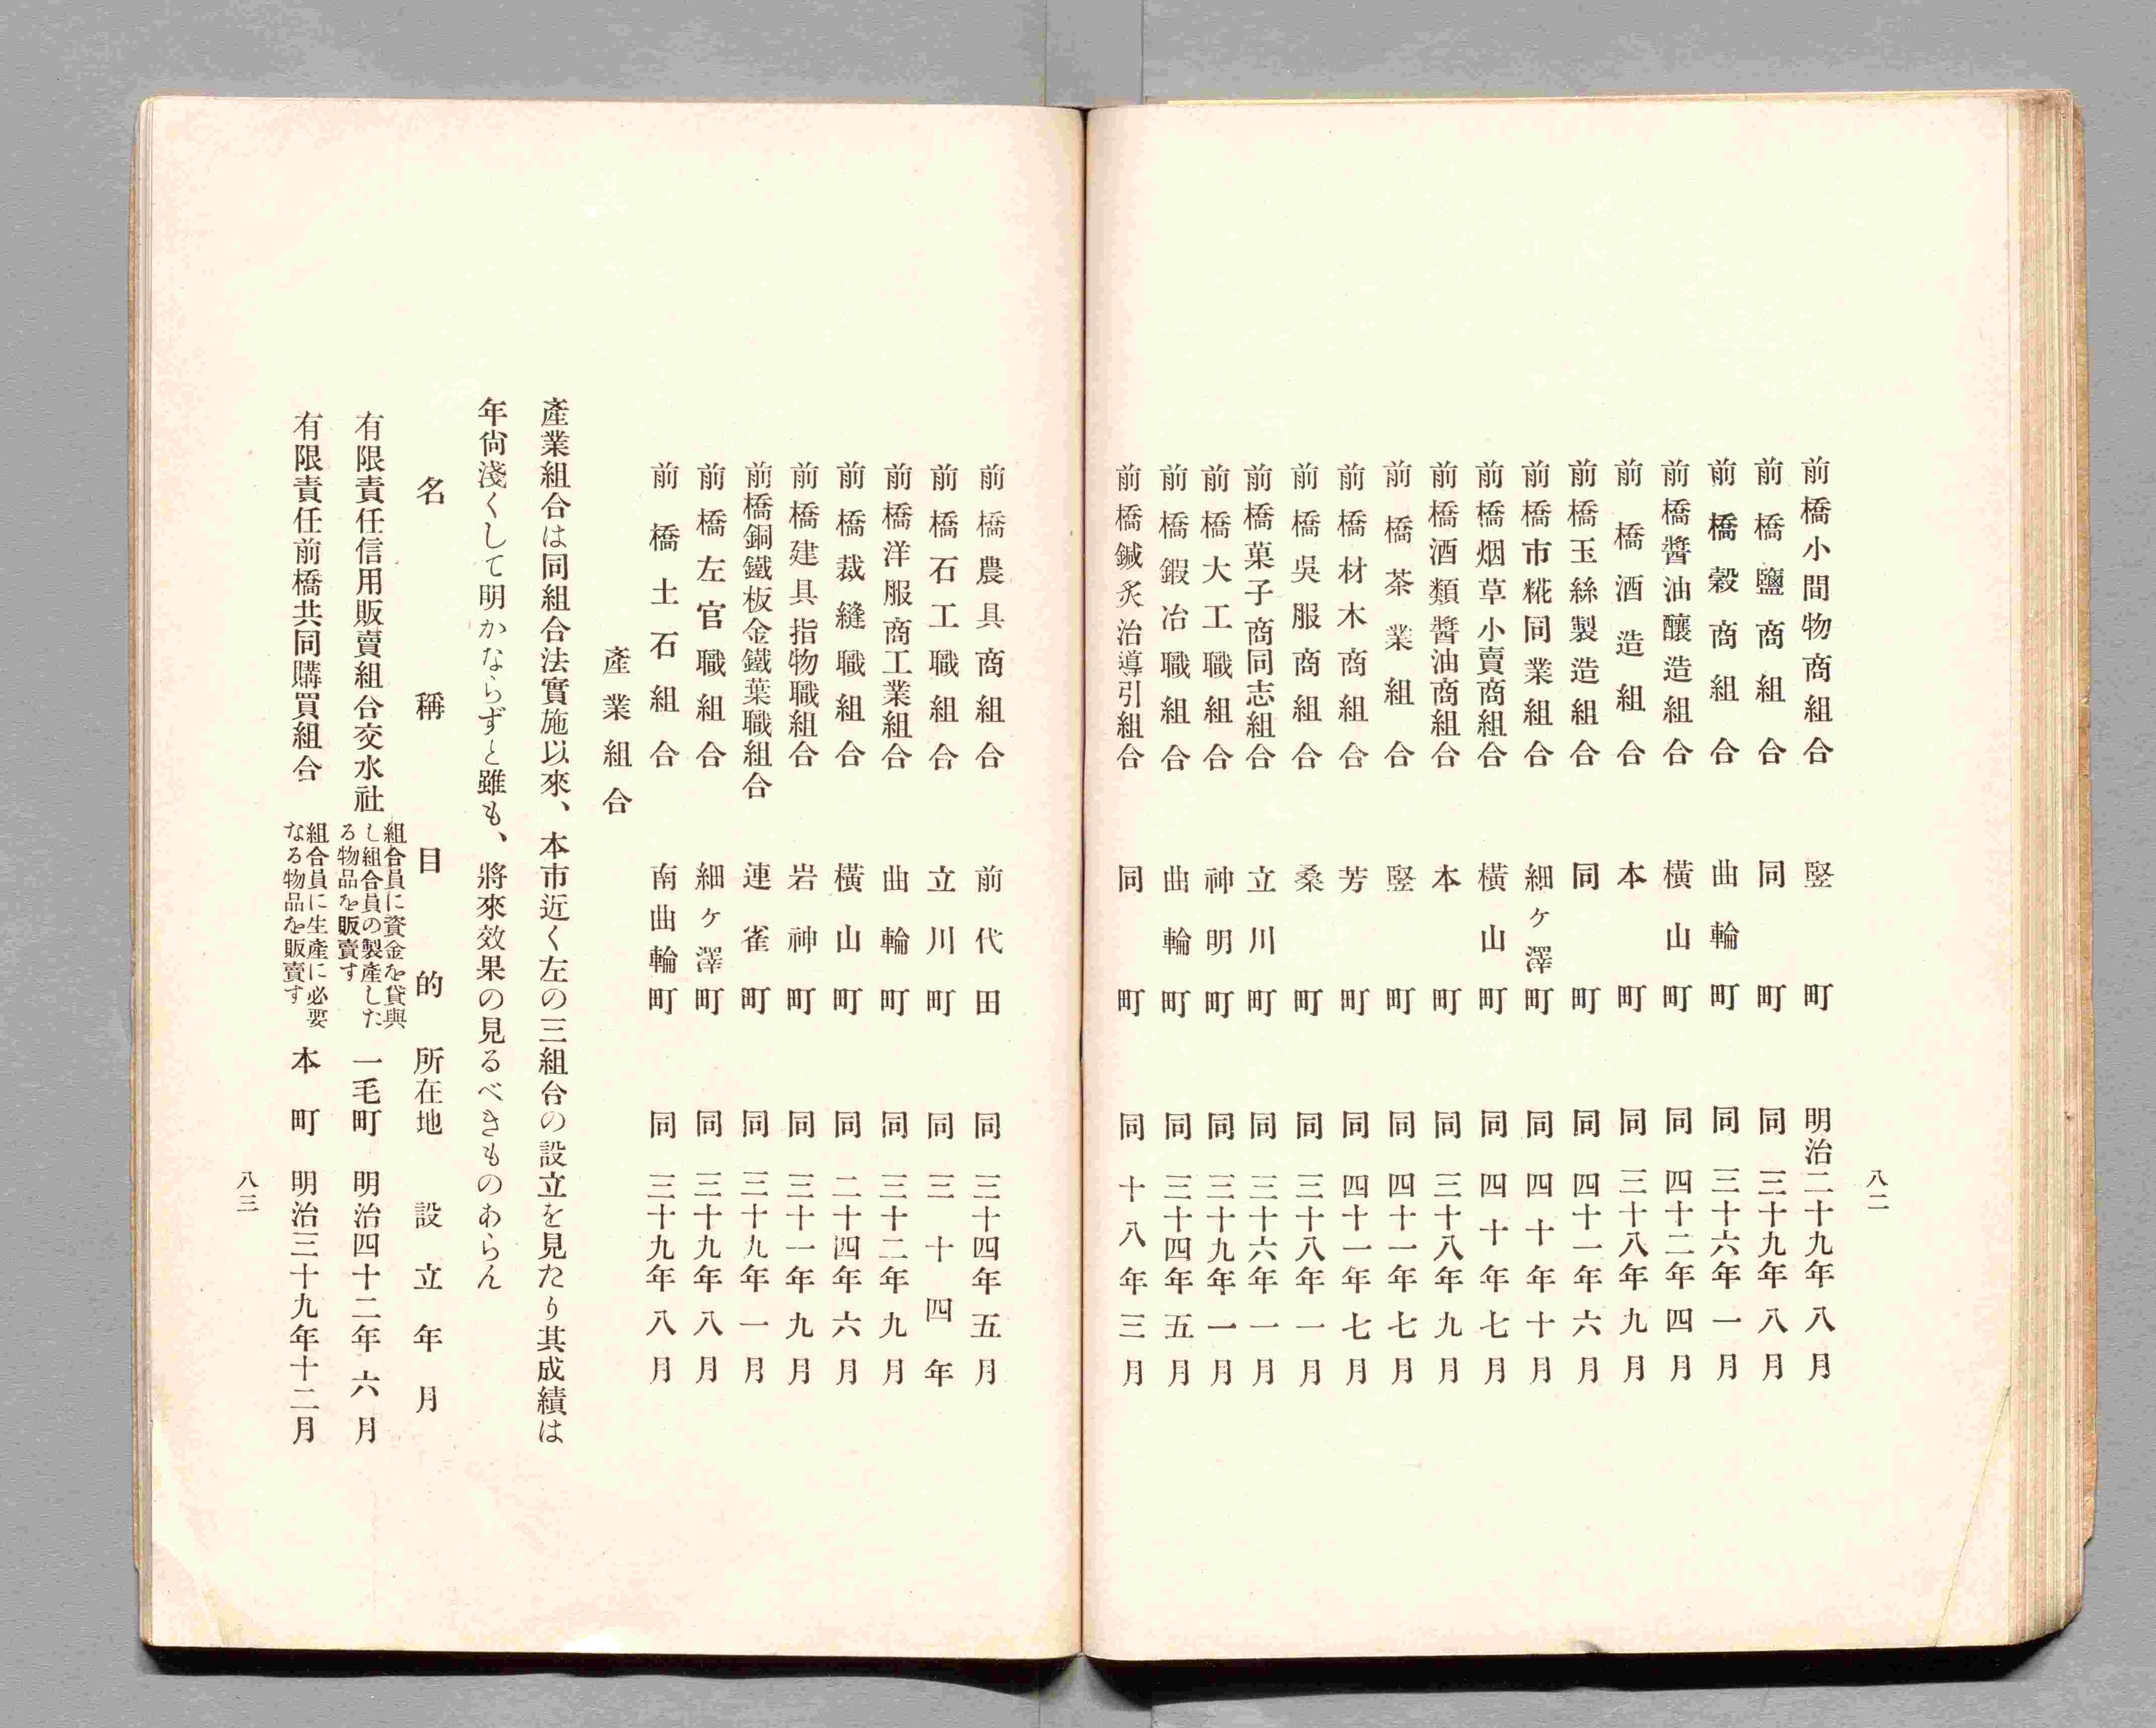 八二
前橋小間物商組合 竪町 明治二十九年八月
前橋鹽商組合 同町 同三十九年八月
前橋穀商組合 曲輪町 同三十六年一月
前橋醬油釀造組合 橫山町 同四十二年四月
前橋酒造組合 本町 同三十八年九月
前橋玉絲製造組合 同町 同四十一年六月
前橋市糀同業組合 細ヶ澤町 同四十年十月
前橋烟草小賣商組合 橫山町 同四十年七月
前橋酒類醬油商組合 本町 同三十八年九月
前橋茶業組合 竪町 同四十一年七月
前橋材木商組合 芳町 同四十一年七月
前橋吳服商組合 桑町 同三十八年一月
前橋菓子商同志組合 立川町 同三十六年一月
前橋大工職組合 神明町 同三十九年一月
前橋鍜冶職組合 曲輪町 同三十四年五月
前橋鍼炙治導引組合 同町 同十八年三月
前橋農具商組合 前代田 同三十四年五月
前橋石工職組合 立川町 同三十四年
前橋洋服商工業組合 曲輪町 同三十二年九月
前橋裁縫職組合 橫山町 同二十四年六月
前橋建具指物職組合 岩神町 同三十一年九月
前橋銅鐵板金鐵葉職組合 連雀町 同三十九年一月
前橋左官職組合 細ヶ澤町 同三十九年八月
前橋土石組合 南曲輪町 同三十九年八月
產業組合
產業組合は同組合法實施以來、本市近く左の三組合の設立を見たり其成績は
年尙淺くして明かならずと雖も、將來效果の見るべきものあらん
名稱 目的 所在地 設立年月
有限責任信用販賣組合交水社 組合員に資金を貸與し組合員の製產したる物品を販賣す 一毛町 明治四十二年六月
有限責任前橋共同購買組合 組合員に生產に必要なる物品を販賣す 本町 明治三十九年十二月
八三